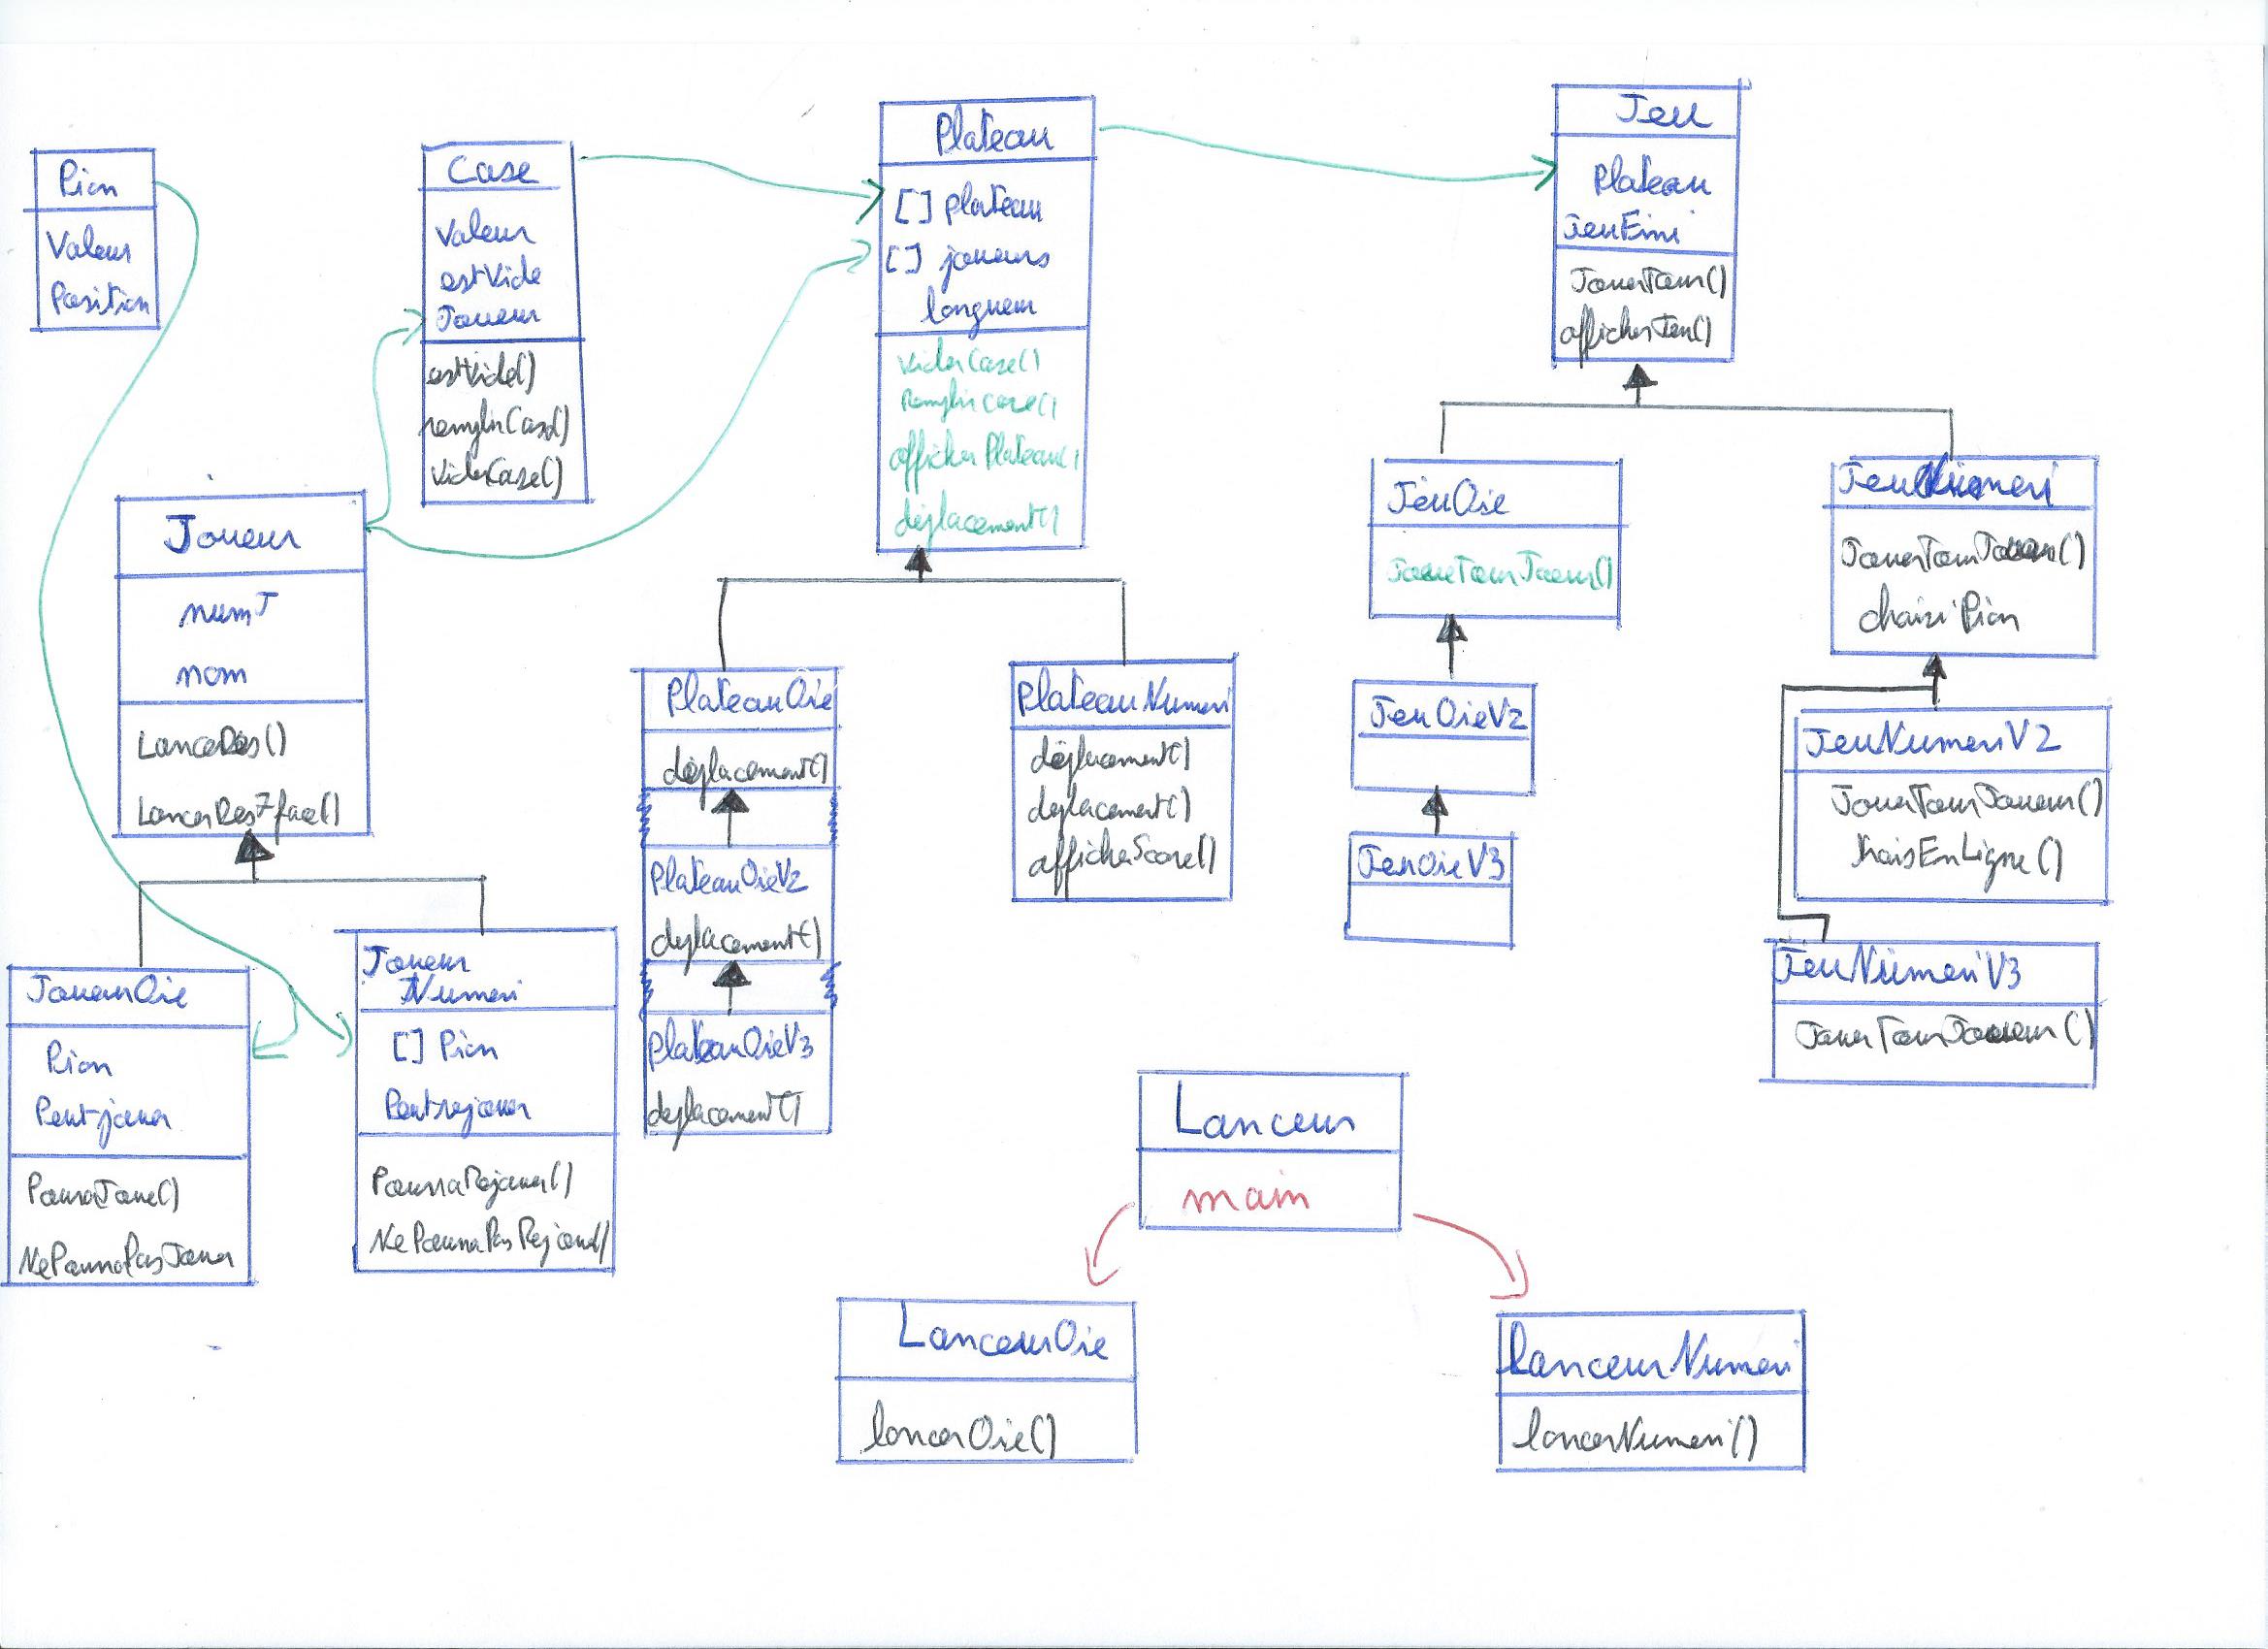 Pion
Valeur
Position
Case
Valeur
estVide
Joueur
estVide()
remplirCase()
viderCase()
Plateau
[] plateau
[] joueurs
longueur
viderCase()
Remplircase()
afficherPlateau()
déplacement()
Jeu
Plateau
JeuFini
JouerTour()
afficherJeu()
Joueur
numJ
nom
LanceDés()
LancerDes7face()
JoueurOie
Pion
Peutjouer
PourraJouer()
NePourraPasJouer
Joueur
Numeri
[] Pion
Peutrejouer
PourraRejouer()
NePourraPasRejouer()
PlateauOie
déplacement()
PlateauOieV2
deplacement()
PlateauOieV3
deplacement()
PlateauNumeri
déplacement()
deplacement()
afficherScore()
JeuOie
JoueTourJoueur()
JeuOieV2
JeuOieV3
JeuNumeri
JouerTourJoueur()
choisiPion
JeuNumeriV2
JouerTourJoueur()
troisEnLigne()
JeuNumeriV3
JouerTourJoueur()
Lanceur
main
LanceurOie
lancerOie()
lanceurNumeri
lancerNumeri()